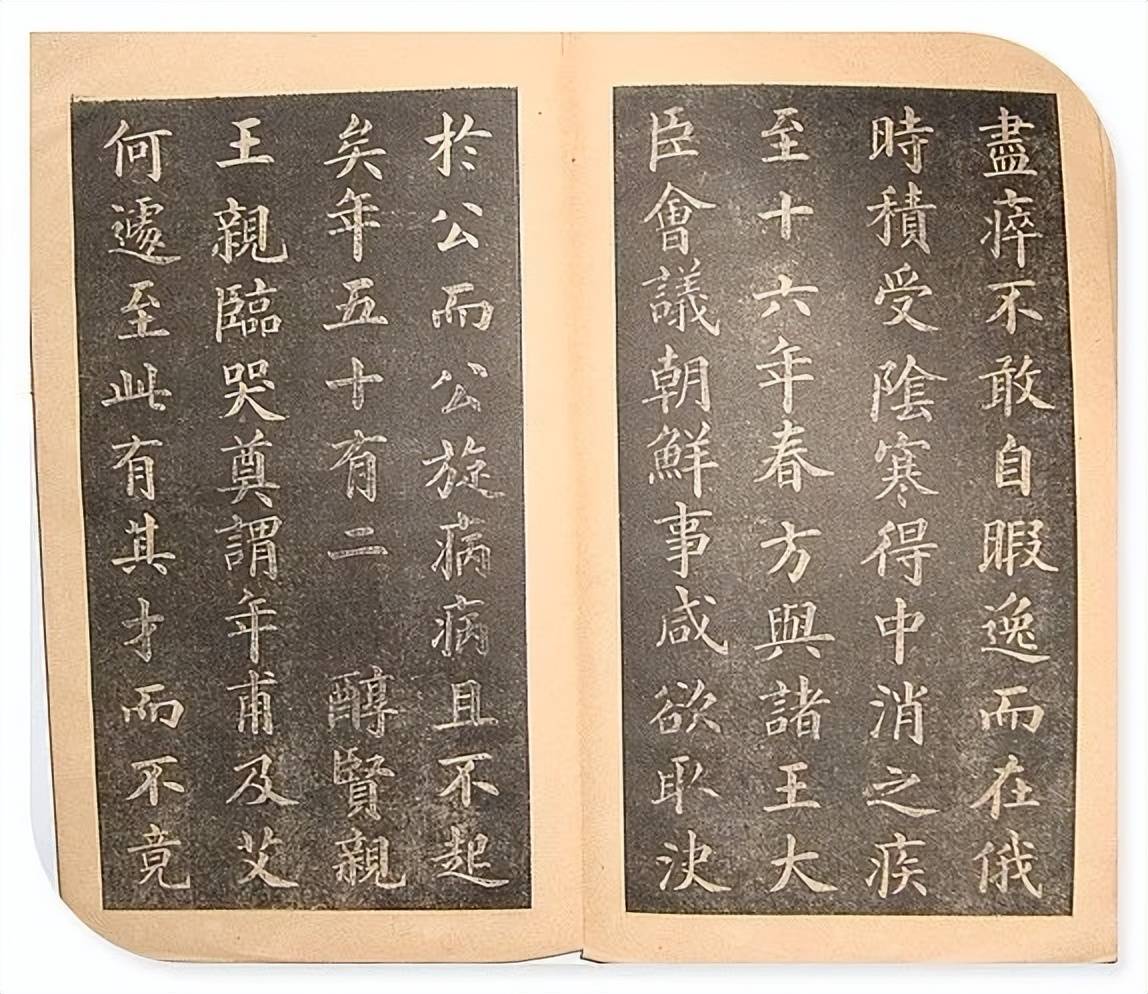 盡瘁不敢自暇逸而在俄
時積受陰寒得中消之疾
至十六年春方與諸王大
臣會議朝鮮事咸欲取決
於公而公旋病病且不起
矣年五十有二 醇賢親
王親臨哭奠謂年甫及艾
何遽至此有其才而不竟